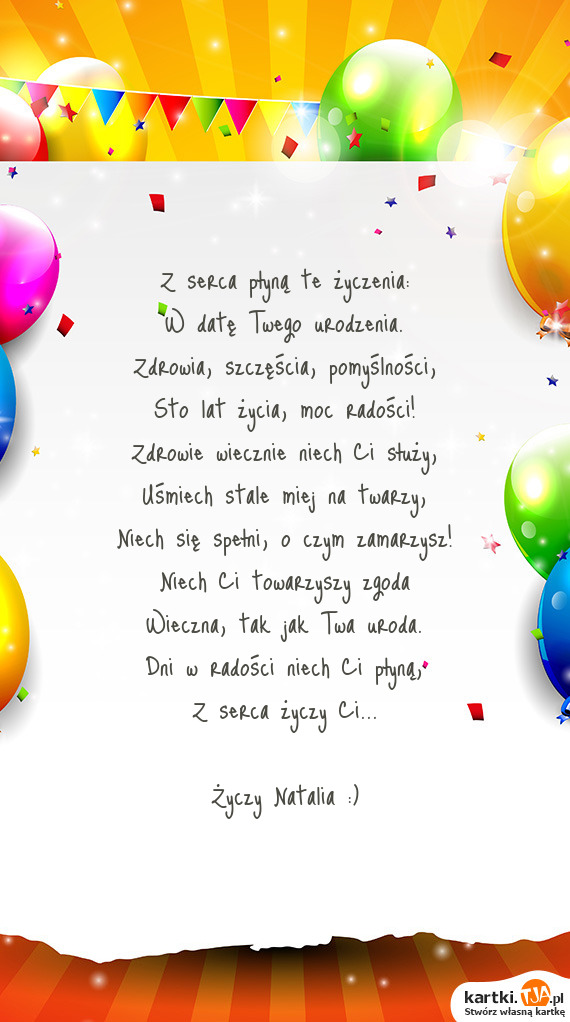 Z serca płyną te życzenia:
W datę Twego urodzenia.
Zdrowia, szczęścia, pomyślności,
Sto lat życia, moc radości!
Zdrowie wiecznie niech Ci służy,
Uśmiech stale miej na twarzy,
Niech się spełni, o czym zamarzysz!
Niech Ci towarzyszy zgoda
Wieczna, tak jak Twa uroda.
Dni w radości niech Ci płyną,
Z serca życzy Ci...
Życzy Natalia :)
kartki.TJA.pl
Stwórz własną kartkę